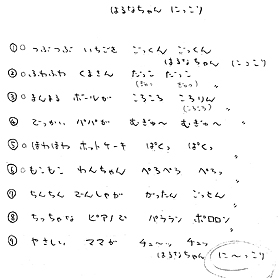 はるなちゃん にっこり
①○ つぶつぶ いちごを ごっくん ごっくん
はるなちゃん にっこり
②○ ふわふわ くまさん だっこ だっこ 〃
(ぎゅっ ぎゅっ)
③○ まんまる ボールが ころころ ころりん 〃
(ころころ)
④○ でっかい パパが むぎゅ〜 むぎゅ〜 〃
⑤○ ほわほわ ホットケーキ ぱくっ ぱくっ 〃
⑥○ もこもこ わんちゃん ぺろぺろ ぺろっ 〃
⑦ ちんちん でんしゃが かったん ごっとん 〃
⑧ ちっちゃな ピアノで パララン ポロロン 〃
⑨ やさしい ママが チュ〜ッ チュッ
はるなちゃん に〜っこり